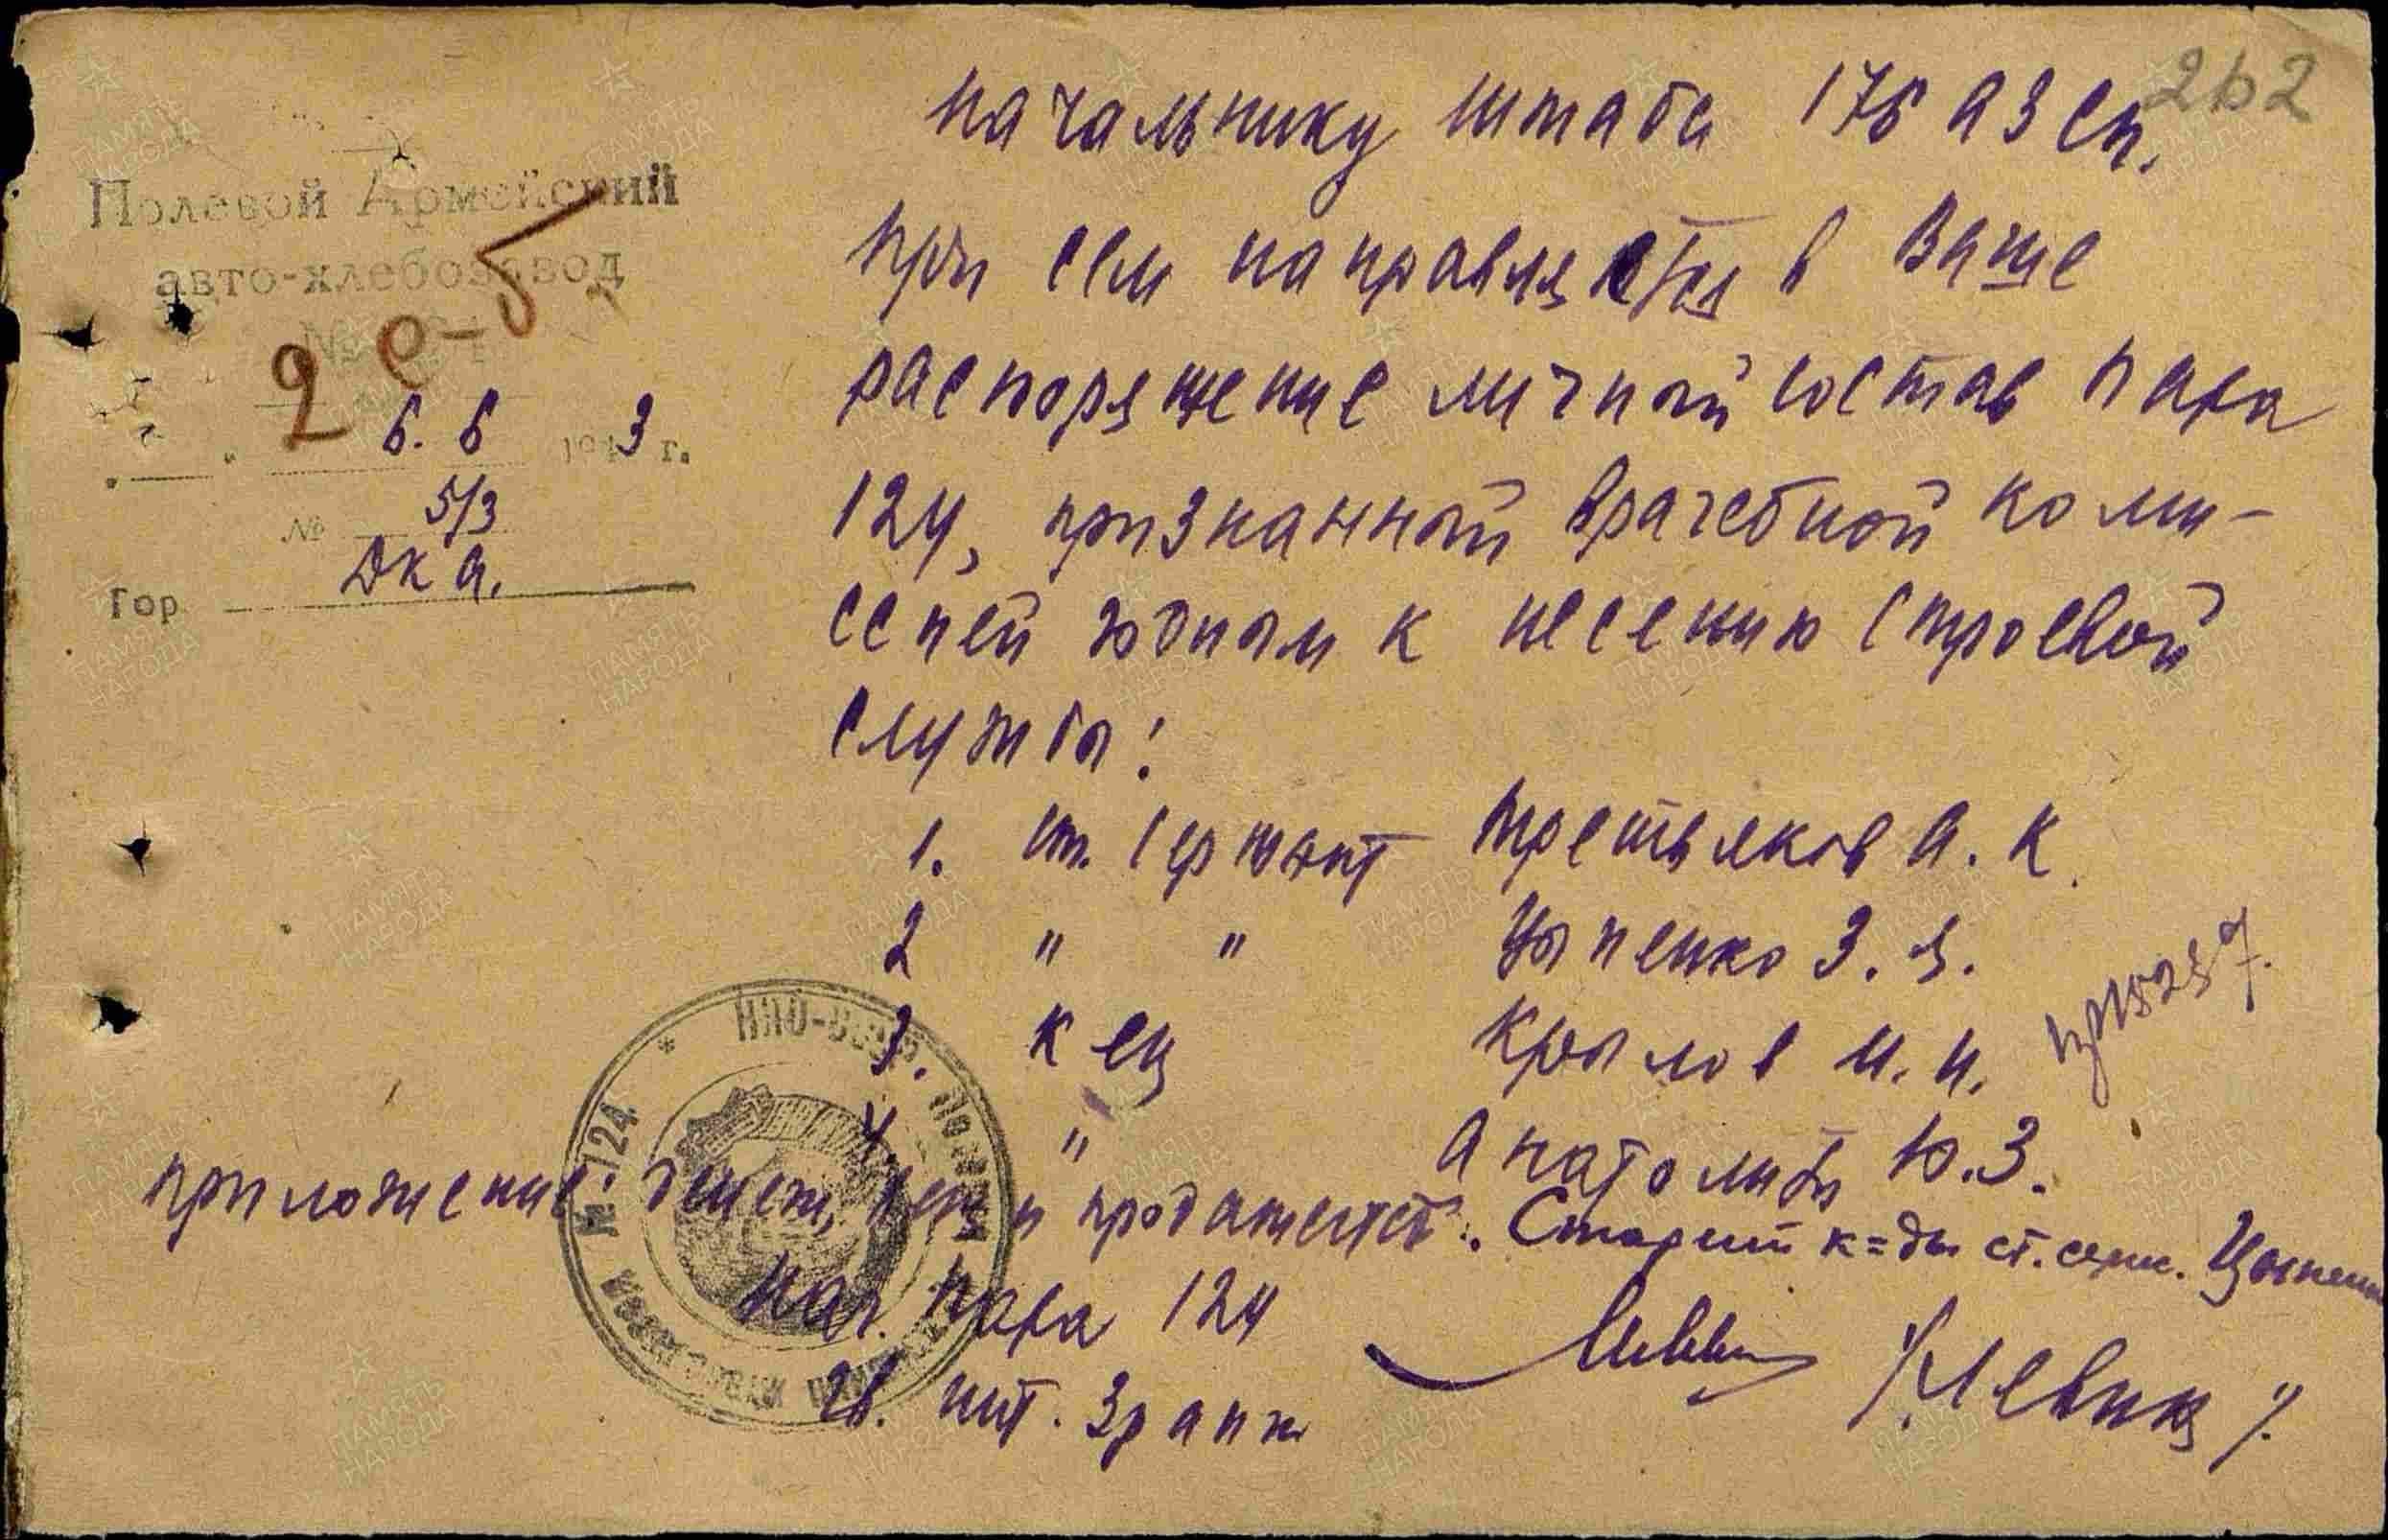 262
Полевой Армейский
авто-хлебозавод
№
2 е-5
6. 6 1943 г.
№ 5/3
Гор ДКА.
Начальнику штаба 176 АЗСП.
При сем направляется в Ваше
распоряжение личный состав Паха
124, признанный врачебной коми-
ссией годным к несению строевой
службы:
1. ст. сержант Третьяков А. К.
2 " " Цыпенко З. Я.
3. к-ец Крылов И. И.
4. " Анатолит Ю. З.
Приложение: денеж, вещ и прод аттестат. Старший к=ды ст. серж. Цыпенко
Нач. Паха 124
инт. 3 ранг
/Левик/.
НКО-СССР * М-124
ПАМЯТЬ НАРОДА